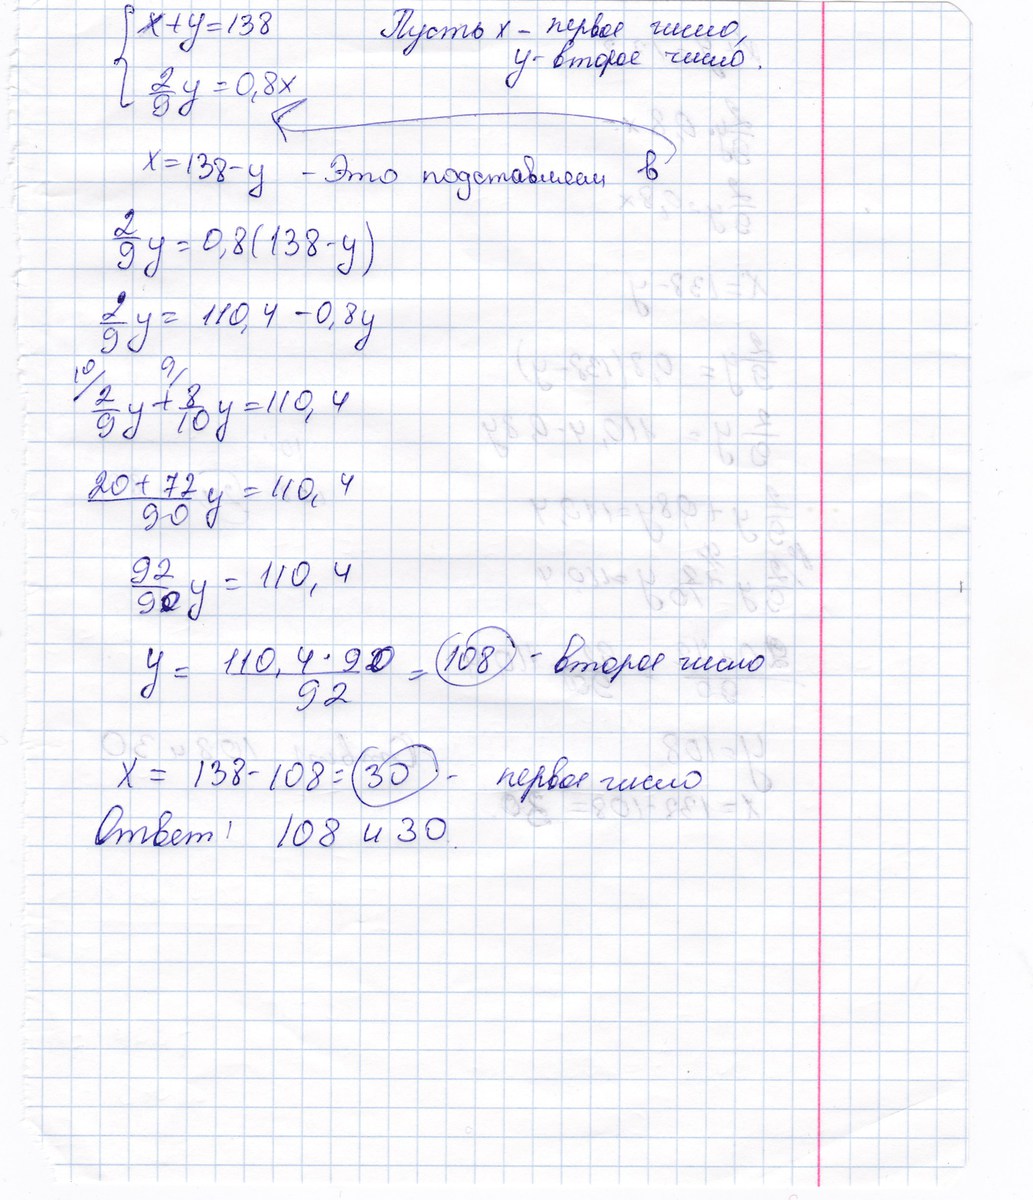 x+y=138 Пусть x - первое число,
y - второе число.
2/9 y = 0,8x
x=138-y - Это подставляем в
2/9 y = 0,8(138-y)
2/9 y = 110,4 - 0,8y
10/ 9/
2/9 y + 8/10 y = 110,4
20+72/90 y = 110,4
92/90 y = 110,4
y = 110,4·90/92 = 108 - второе число
x = 138-108 = 30 - первое число
Ответ: 108 и 30.